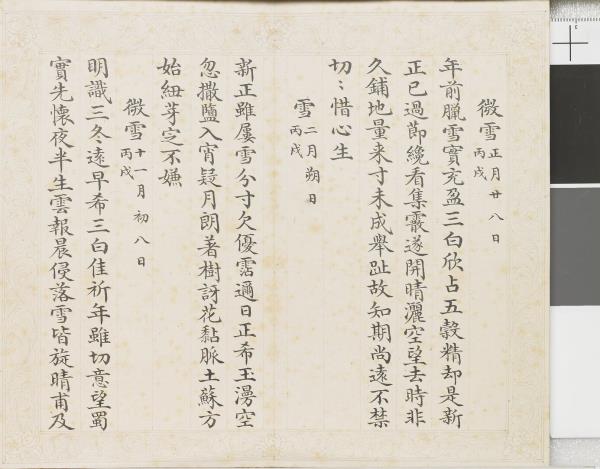 微雪 正月廿八日 丙戌
年前臘雪實充盈三白欣占五穀精却是新
正已過節纔看集霰遂開晴灑空望去時非
久鋪地量来寸未成舉趾故知期尚遠不禁
切〻惜心生
雪 二月朔日 丙戌
新正雖屢雪分寸欠優霑邇日正希玉灣空
忽撒鹽入宵疑月朗著樹訝花黏脈土蘇方
始紐芽定不嫌
微雪 十一月初八日 丙戌
明識三冬遠早希三白佳祈年雖切意望蜀
實先懷夜半生雲報晨侵落雪皆旋晴甫及